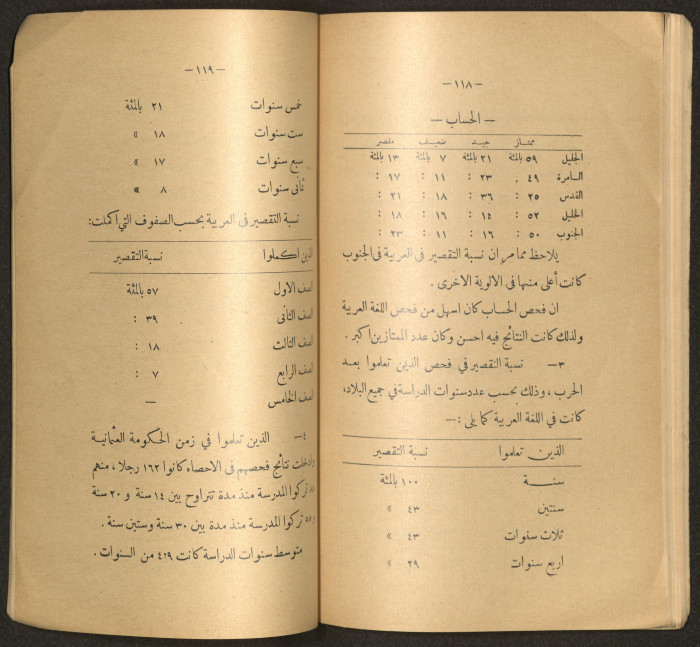 — ١١٨ —
— الحساب —
ممتاز جيد ضعيف مقصر
الجليل ٥٩ بالمئة ٢١ بالمئة ٧ بالمئة ١٣ بالمئة
السامرة ٤٩ . ٢٣ : ١١ : ١٧ :
القدس ٢٥ : ٣٦ : ١٨ : ٢١ :
الخليل ٥٢ : ١٤ : ١٦ : ١٨ :
الجنوب ٥٠ : ١٦ : ١١ : ٢٣ :
يلاحظ مما مر ان نسبة التقصير فى العربية فى الجنوب
كانت أعلى منها فى الالوية الاخرى .
ان فحص الحساب كان اسهل من فحص اللغة العربية
ولذلك كانت النتائج فيه احسن وكان عدد الممتازين اكبر .
٣— نسبة التقصير في فحص الذين تعلموا بعد
الحرب ، وذلك بحسب عدد سنوات الدراسة في جميع البلاد،
كانت في اللغة العربية كما يلى :—
الذين تعلموا نسبة التقصير
سنة ١٠٠ بالمئة
سنتين ٤٣ »
ثلاث سنوات ٤٣ »
اربع سنوات ٢٩ »
— ١١٩ —
خمس سنوات ٢١ بالمئة
ست سنوات ١٨ »
سبع سنوات ١٧ »
ثمانى سنوات ٨ »
نسبة التقصير فى العربية بحسب الصفوف التي اكملت:
الذين اكملوا نسبة التقصير
الصف الاول ٥٧ بالمئة
الصف الثانى ٣٩ :
الصف الثالث ١٨ :
الصف الرابع ٧ :
الصف الخامس —
٤— الذين تعلموا في زمن الحكومة العثمانية
وادخلت نتائج فحصهم فى الاحصاء كانوا ١٦٢ رجلا ، منهم
تركوا المدرسة منذ مدة تتراوح بين ١٤ سنة و ٢٠ سنة
و ٥٥ تركوا المدرسة منذ مدة بين ٣٠ سنة وستين سنة .
متوسط سنوات الدراسة كانت ٤٫٩ من السنوات .